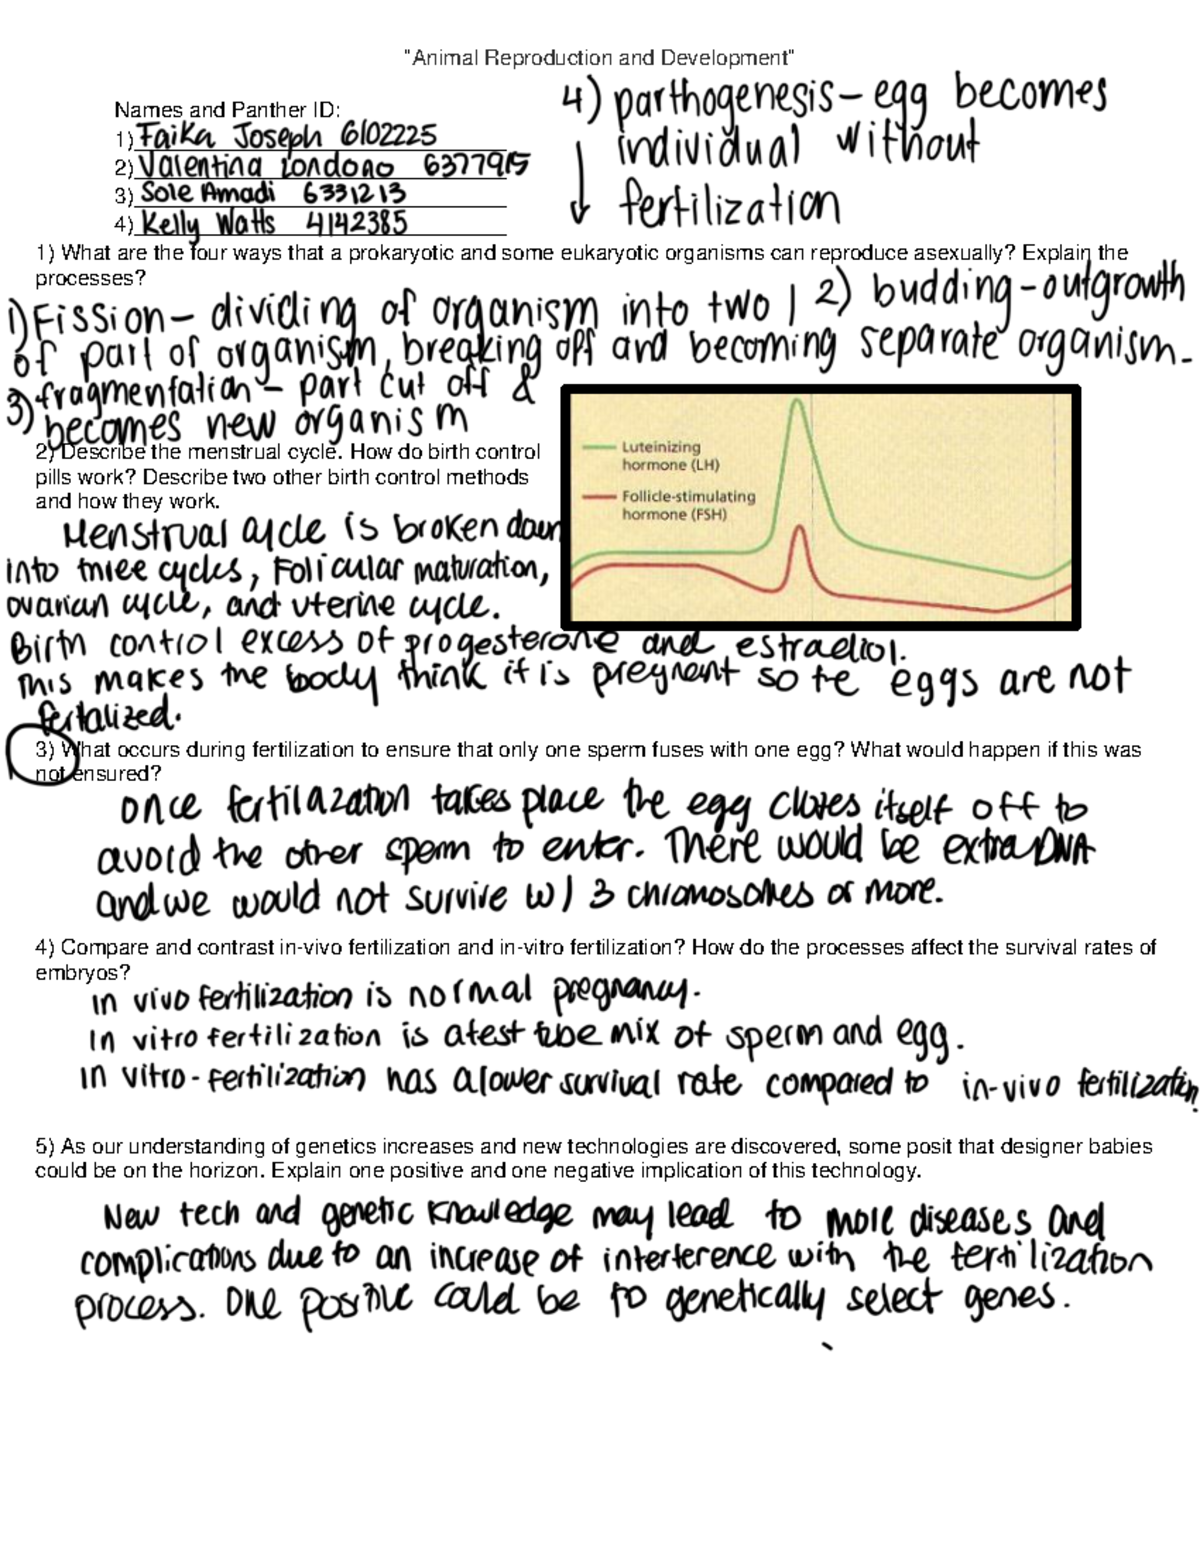 "Animal Reproduction and Development"
Names and Panther ID:
1) Faika Joseph 6102225
2) Valentina Londono 6377915
3) Sole Amadi 6331213
4) Kelly Watts 4142385
4) parthogenesis – egg becomes
individual without
fertilization
1) What are the four ways that a prokaryotic and some eukaryotic organisms can reproduce asexually? Explain the
processes?
1) Fission – dividing of organism into two | 2) budding – outgrowth
of part of organism, breaking off and becoming separate organism.
3) fragmentation – part cut off &
becomes new organism
2) Describe the menstrual cycle. How do birth control
pills work? Describe two other birth control methods
and how they work.
Luteinizing
hormone (LH)
Follicle-stimulating
hormone (FSH)
Menstrual cycle is broken down
into three cycles, Folicular maturation,
ovarian cycle, and uterine cycle.
Birth control excess of progesterone and estradiol.
This makes the body think it is pregnent so te eggs are not
fertalized.
3) What occurs during fertilization to ensure that only one sperm fuses with one egg? What would happen if this was
not ensured?
once fertilazation takes place the egg closes itself off to
avoid the other sperm to enter. There would be extra DNA
and we would not survive w/ 3 chromosomes or more.
4) Compare and contrast in-vivo fertilization and in-vitro fertilization? How do the processes affect the survival rates of
embryos?
In vivo fertilization is normal pregnancy.
In vitro fertilization is a test tube mix of sperm and egg.
In vitro-fertilization has a lower survival rate compared to in-vivo fertilization.
5) As our understanding of genetics increases and new technologies are discovered, some posit that designer babies
could be on the horizon. Explain one positive and one negative implication of this technology.
New tech and genetic knowledge may lead to more diseases and
complications due to an increase of interference with the fertilization
process. One positive could be to genetically select genes.